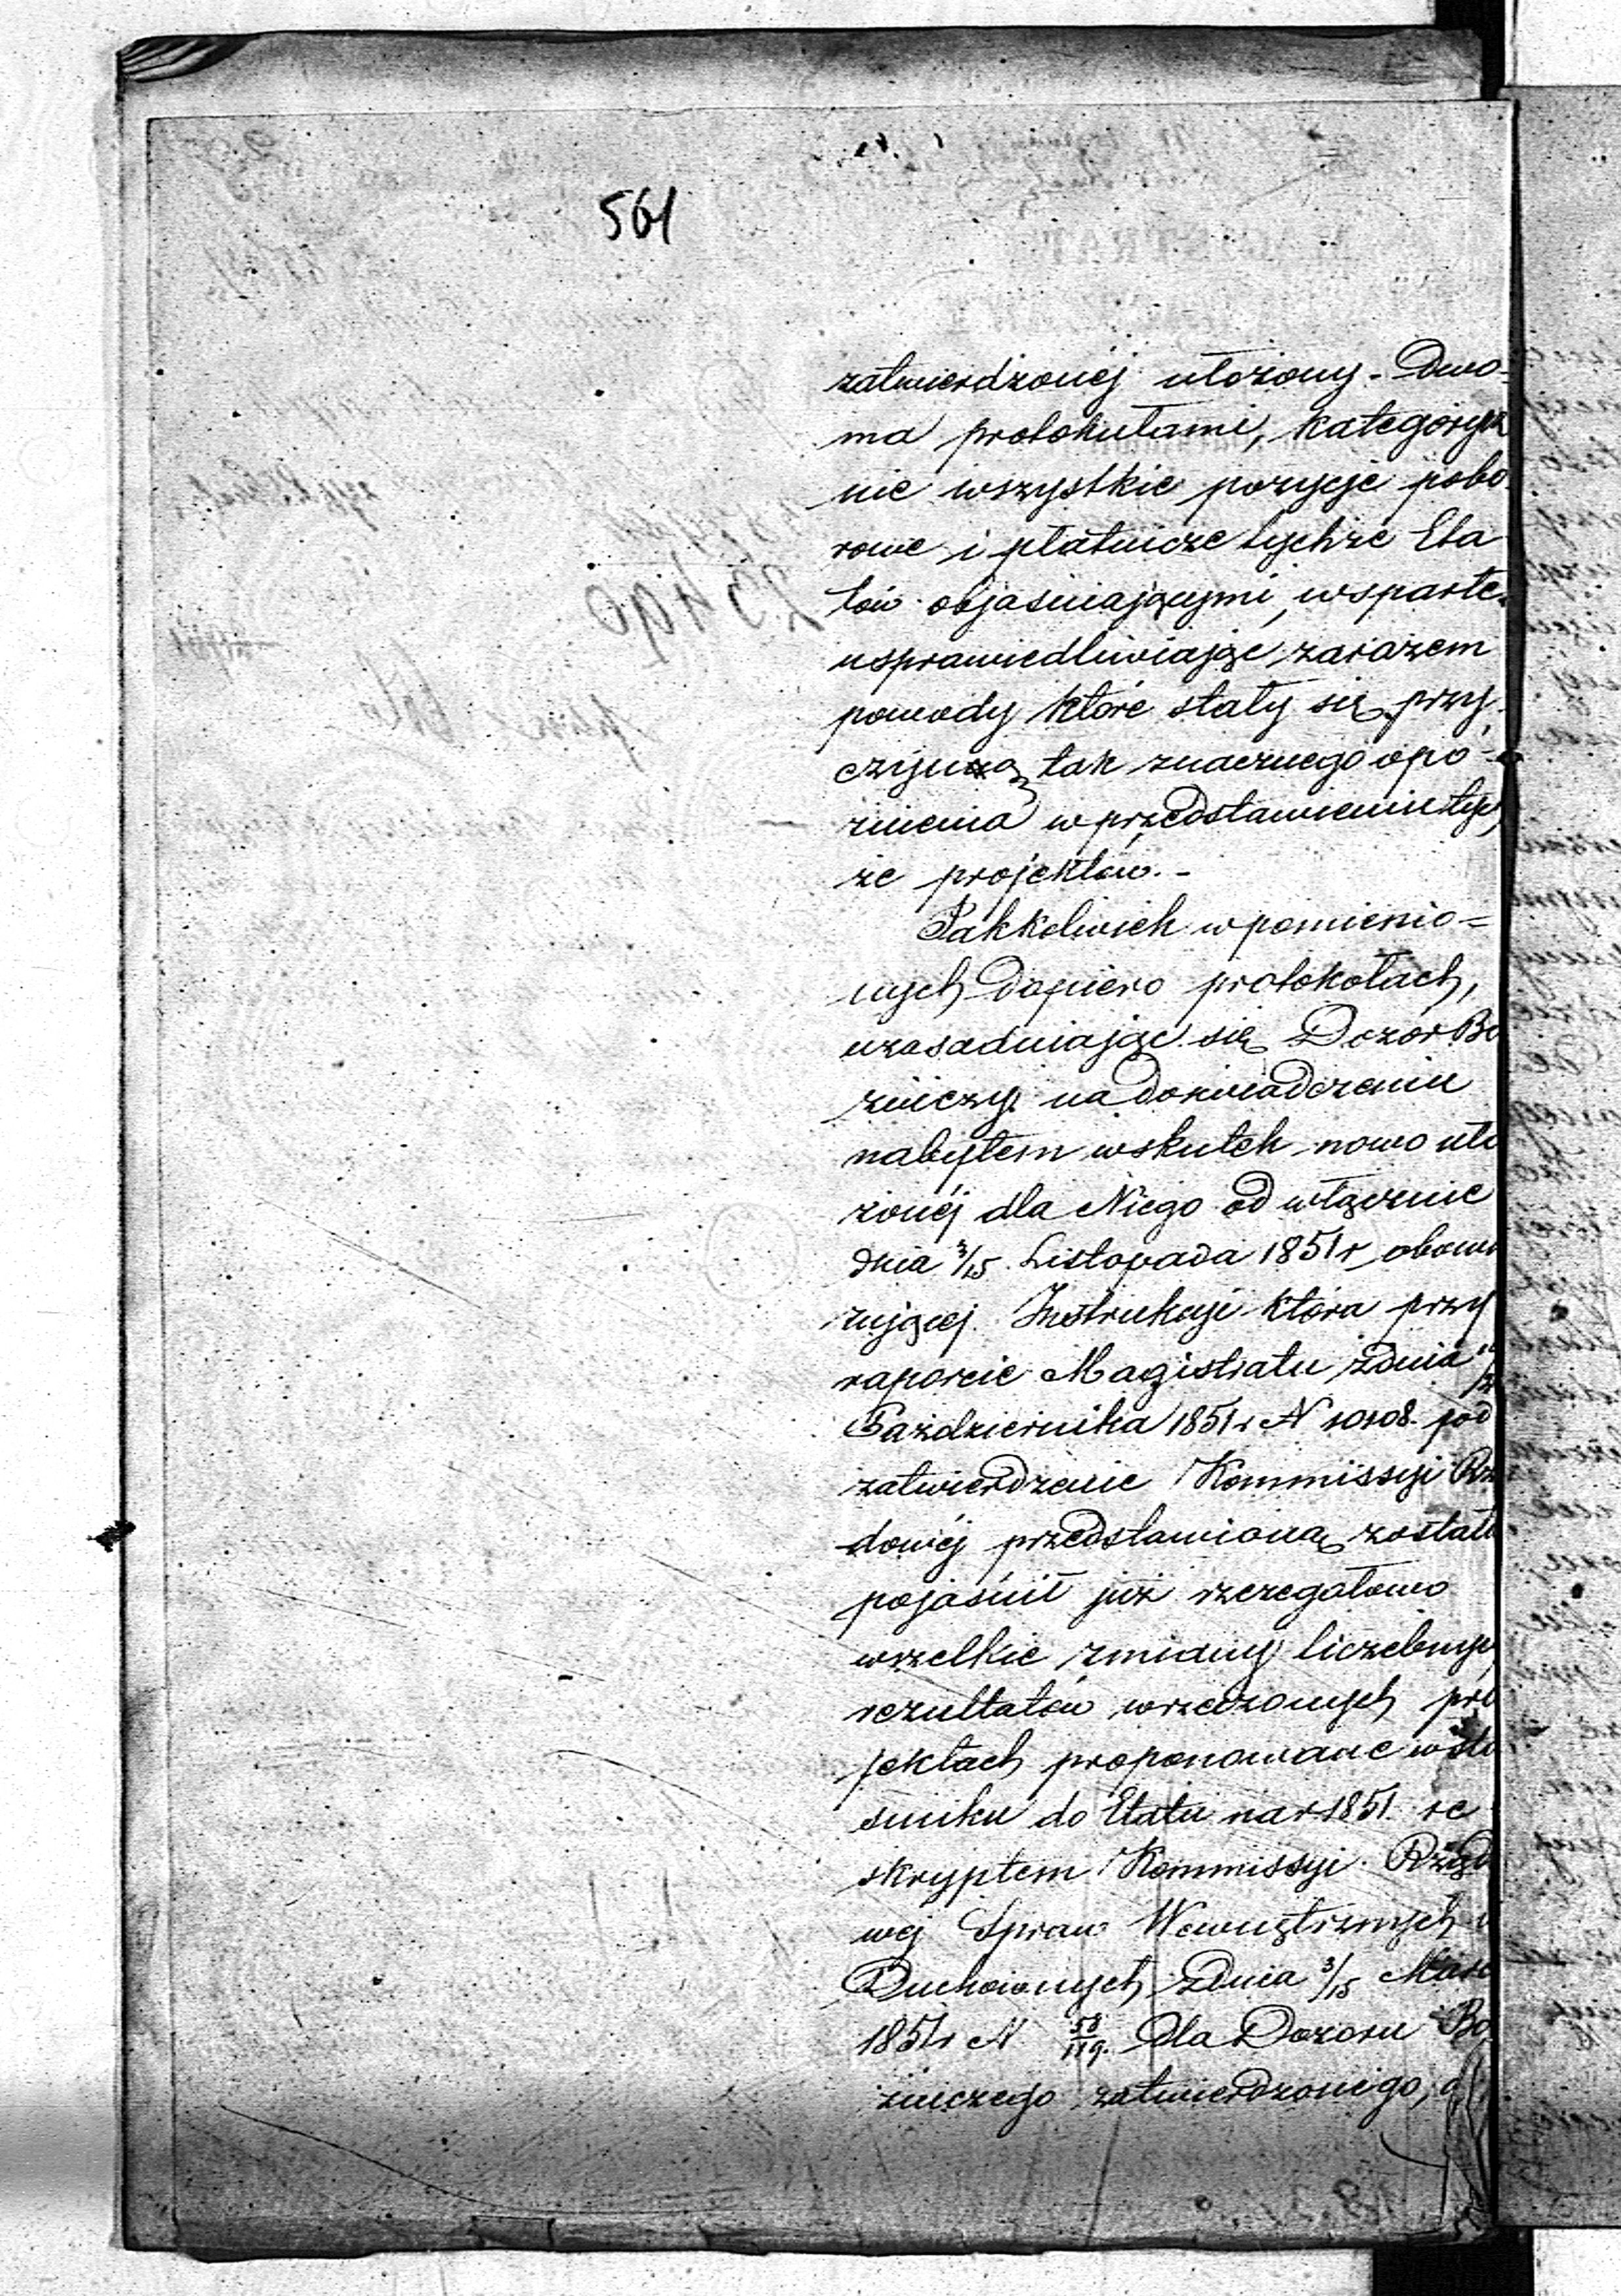 561
zatwierdzonéj ułożony. Dwo-
ma protokułami, kategorycz
nie wszystkie pozycje pobo
rowe i płatnicze tychże Eta
tów objaśniającymi, wsparte
usprawiedliwiając zarazem
powody które stały się przy
czyną tak znacznego opó-
źnienia w przedstawieniu tych
że projektów. -
Jakkolwiek w pomienio=
nych dopiero protokołach,
uzasadniając się Dozór Bo
żniczy na doświadczeniu
nabytem wskutek nowo uło
żonéj dla Niego od włącznie
dnia 3/15 Listopada 1851 r obowi
zującej Instrukcyi która przy
raporcie Magistratu z dnia
Października 1851 r N 10108. pod
zatwierdzenie Kommissyi Rz
dowéj przedstawioną została
pojaśnił już szczegółowo
wszelkie zmiany liczebnych
rezultatów w rzeczonych pro
jektach proponowane w sto
sunku do Etatu na r 1851 re
skryptem Kommissyi Rządo
wej Spraw Wewnętrznych i
Duchownych z dnia 3/15 Marc
1851 r N 58/119. dla Dozoru Bo
żniczego zatwierdzonego,